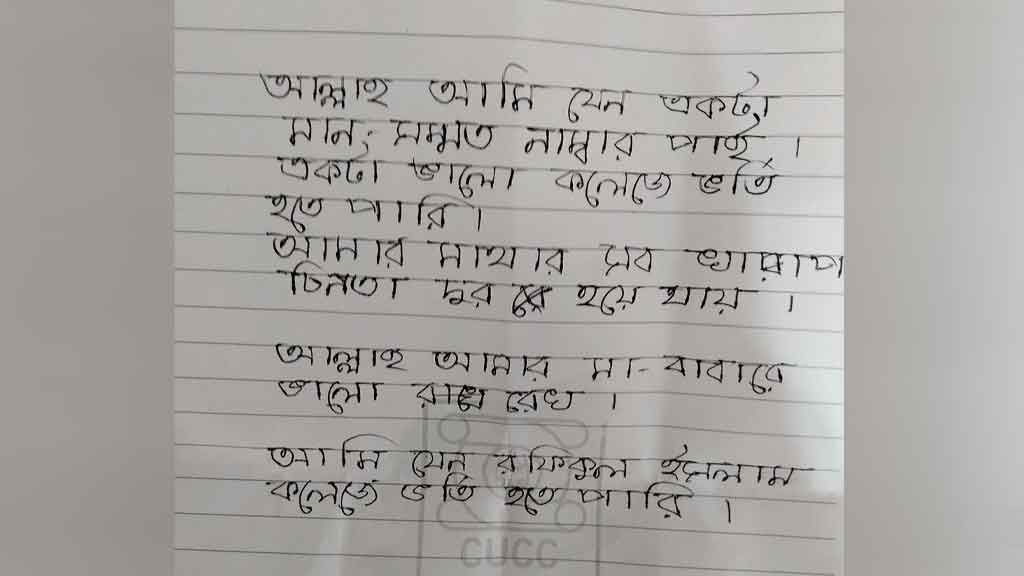 আল্লাহ আমি যেন একটা
মান; সম্মত নাম্বার পাই।
একটা ভালো কলেজে ভর্তি
হতে পারি।
আমার মাথার সব খারাপ
চিনতা দুর হয়ে যায়।
আল্লাহ আমার মা-বাবারে
ভালো রেখ।
আমি যেন রফিকুল ইসলাম
কলেজে ভর্তি হতে পারি।
CUCC